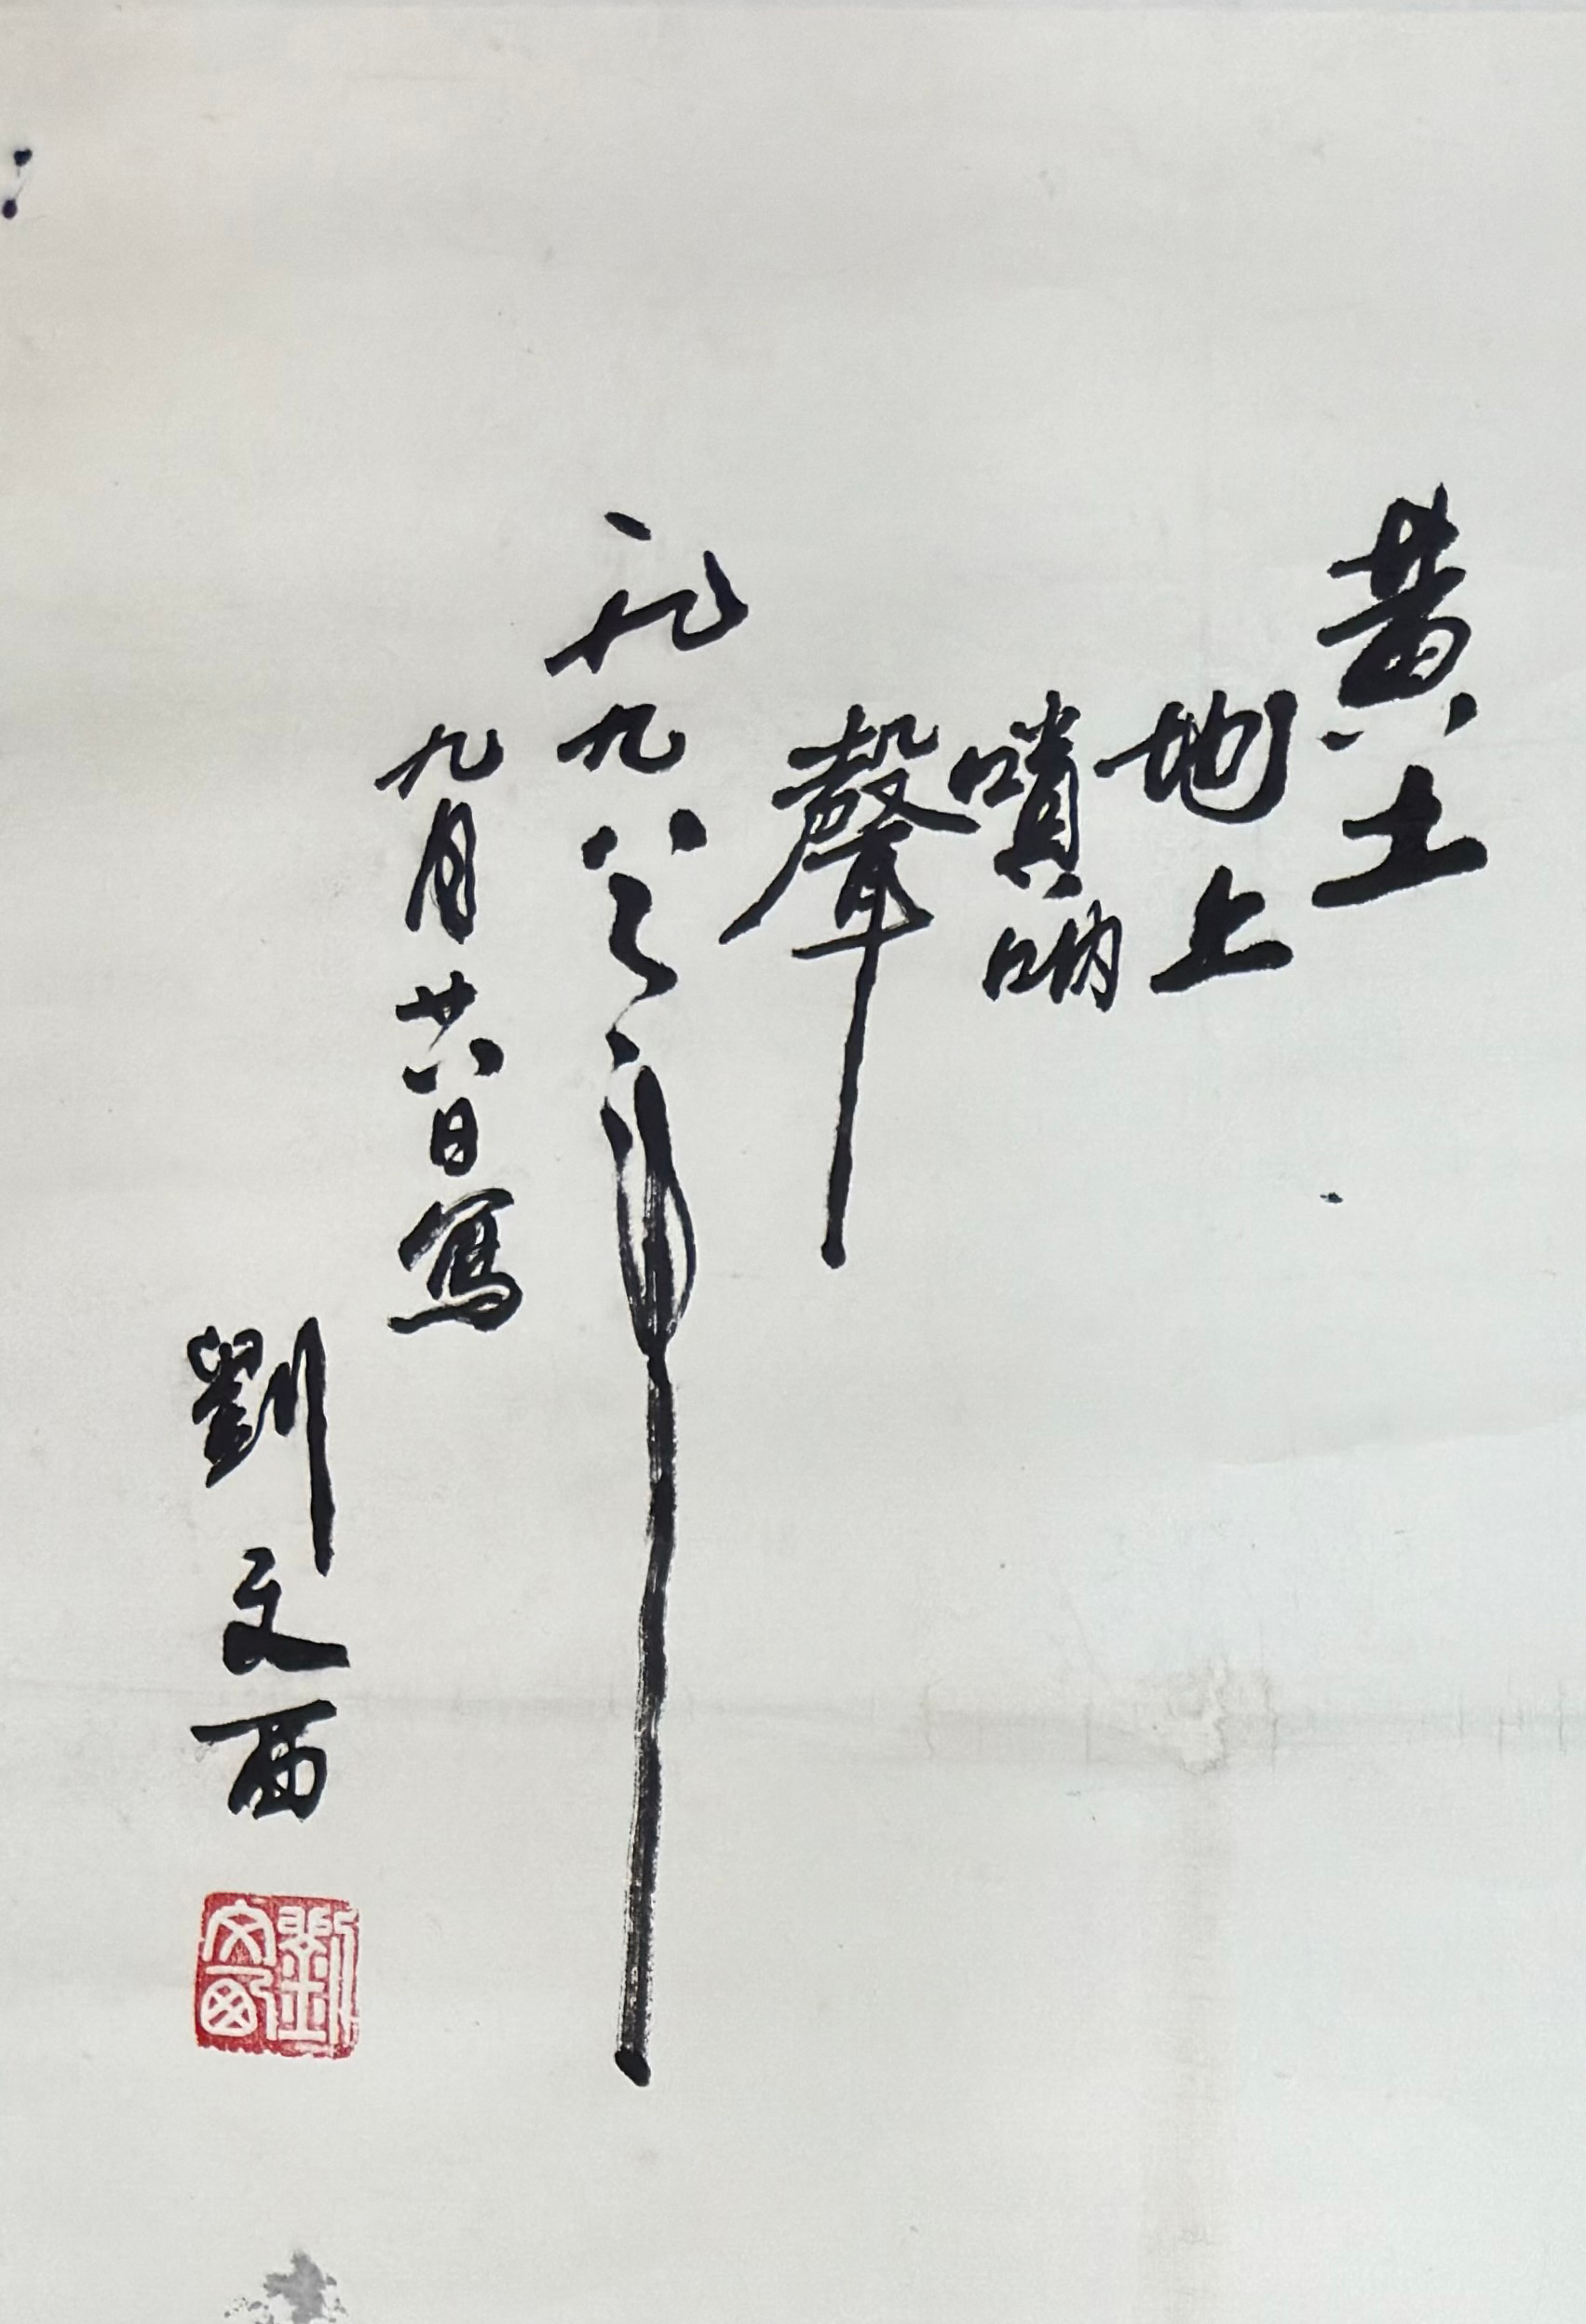 黄土
地上
嗩呐
聲
一九九八之年
九月廿八日寫
劉文西
劉文西